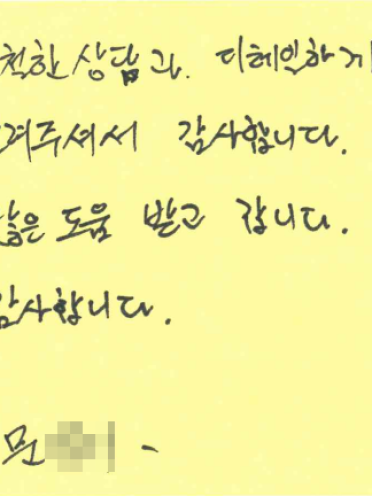 절한 상담과. 디테일하게
려주셔서 감사합니다.
많은 도움 받고 갑니다.
감사합니다.
문 -